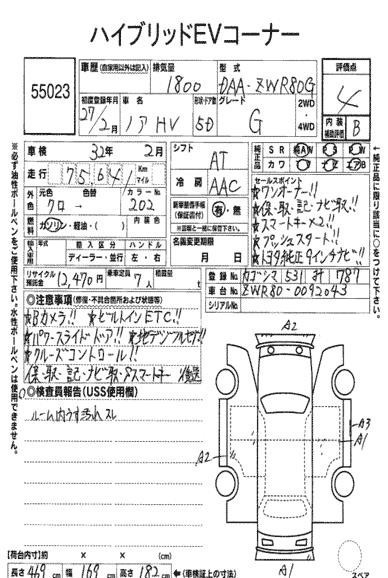 ハイブリッドEVコーナー
55023
車歴 (自家用以外は記入) 排気量 型式 評価点
1800 DAA-ZWR80G 4
初度登録年月 車名 ドア・形状 グレード
27/2月 ノア HV 5D G 2WD・4WD
内装補助評価 B
車検 32年 2月 シフト AT
走行 75641 Km マイル
冷房 AAC
純正品 SR AW PS PW
カワ ナビ TV エアB
セールスポイント
★ワンオーナー!!
★保・取・記・ナビ取!!
★スマートキー×2!!
★プッシュスタート!!
★トヨタ純正9インチナビ!!
外装色 元色 クロ 色替 → カラーNo. 202
燃料 ガソリン・軽油・( ) 内装色
新車整備手帳(保証書付) 有・無
名義変更期限 月 日
輸入区分 ハンドル
ディーラー・並行 左・右
リサイクル預託金 12,470円 乗車定員 7人 積載量 t
登録No. カゴシマ 531 す 787
車台No. ZWR80-0092043
シリアルNo.
◎注意事項 (修復・不具合箇所および状態等)
★Bカメラ!! ★ビルトインETC!!
★パワースライドドア!! ★地デジフルセグ!!
★クルーズコントロール!!
保・取・記・ナビ取・スマートキー 後送
◎検査員報告 (USS使用欄)
ルーム内うす汚れ スレ
A2
A3
A1
A2
A1
スペア
【荷台内寸】約 × × (cm)
長さ 469 cm 幅 169 cm 高さ 182 cm ←(車検証上の寸法)
※必ず油性ボールペンをご使用下さい。水性ボールペンは使用できません。
純正品に限り該当に○をつけて下さい。